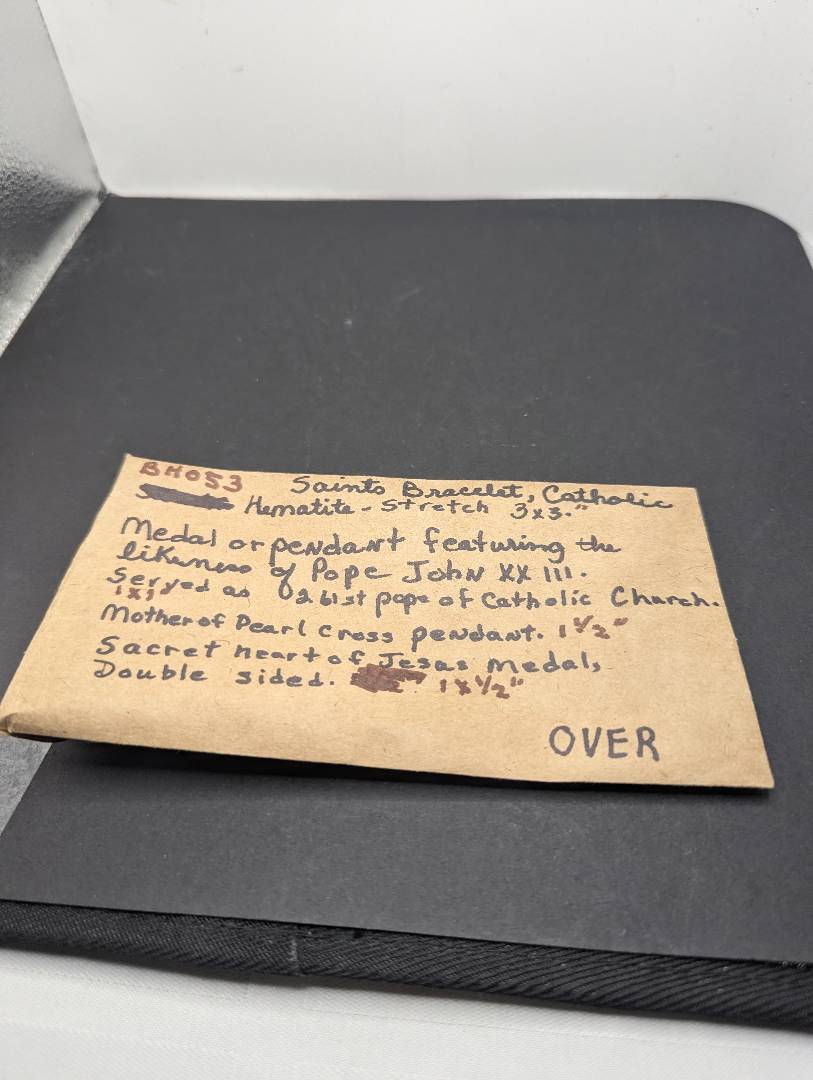 BH053 Saints Bracelet, Catholic
Hematite - Stretch 3x3."
Medal or pendant featuring the
likeness of Pope John XX III.
Served as 261st pope of Catholic Church.
1x1"
Mother of Pearl Cross pendant. 1 1/2"
Sacret heart of Jesas Medal,
Double sided. 1 x 1/2"
OVER